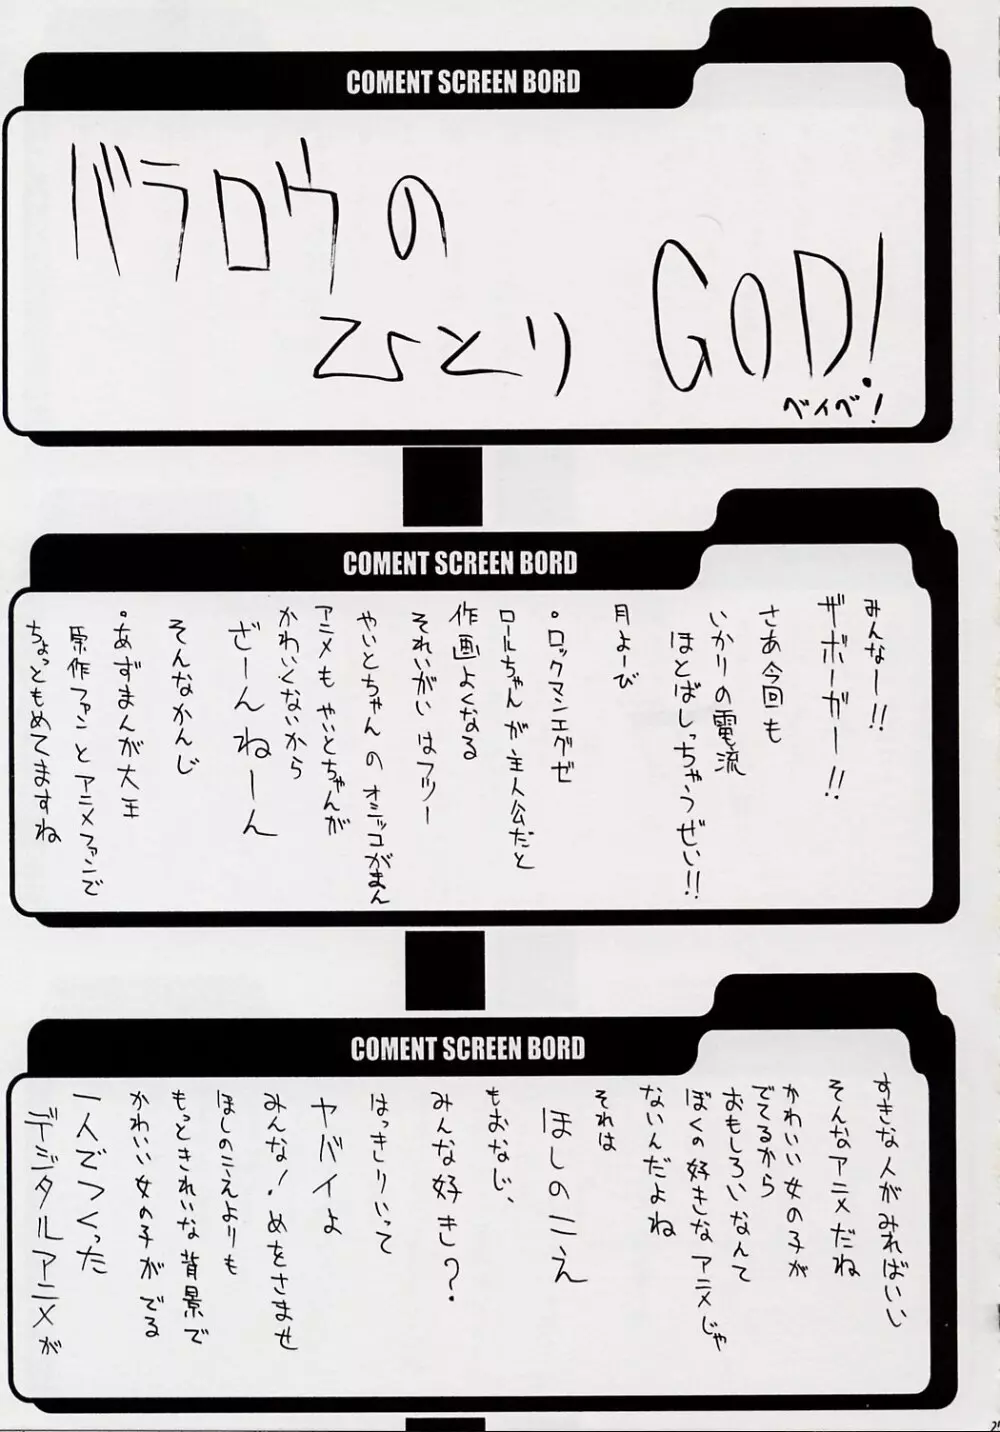 COMENT SCREEN BORD
バラロウの
ひとり
GOD!
ベイベ!
COMENT SCREEN BORD
みんなー!!
ザボーガー!!
さあ今回も
いかりの電流
ほとばしっちゃうぜい!!
月よーび
・ロックマンエグゼ
ロールちゃんが主人公だと
作画よくなる
それいがいはフツー
やいとちゃんのオミッコがまん
アニメもやいとちゃんが
かわいくないから
ざーんねーん
そんなかんじ
・あずまんが大王
原作ファンとアニメファンで
ちょっともめてますね
COMENT SCREEN BORD
すきな人がみればいい
そんなアニメだね
かわいい女の子が
でてるから
おもしろいなんて
ぼくの好きなアニメじゃ
ないんだよね
それは
ほしのこえ
もおなじ、
みんな好き?
はっきりいって
ヤバイよ
みんな!めをさませ
ほしのこえよりも
もっときれいな背景で
かわいい女の子がでる
一人でつくった
デジタルアニメが